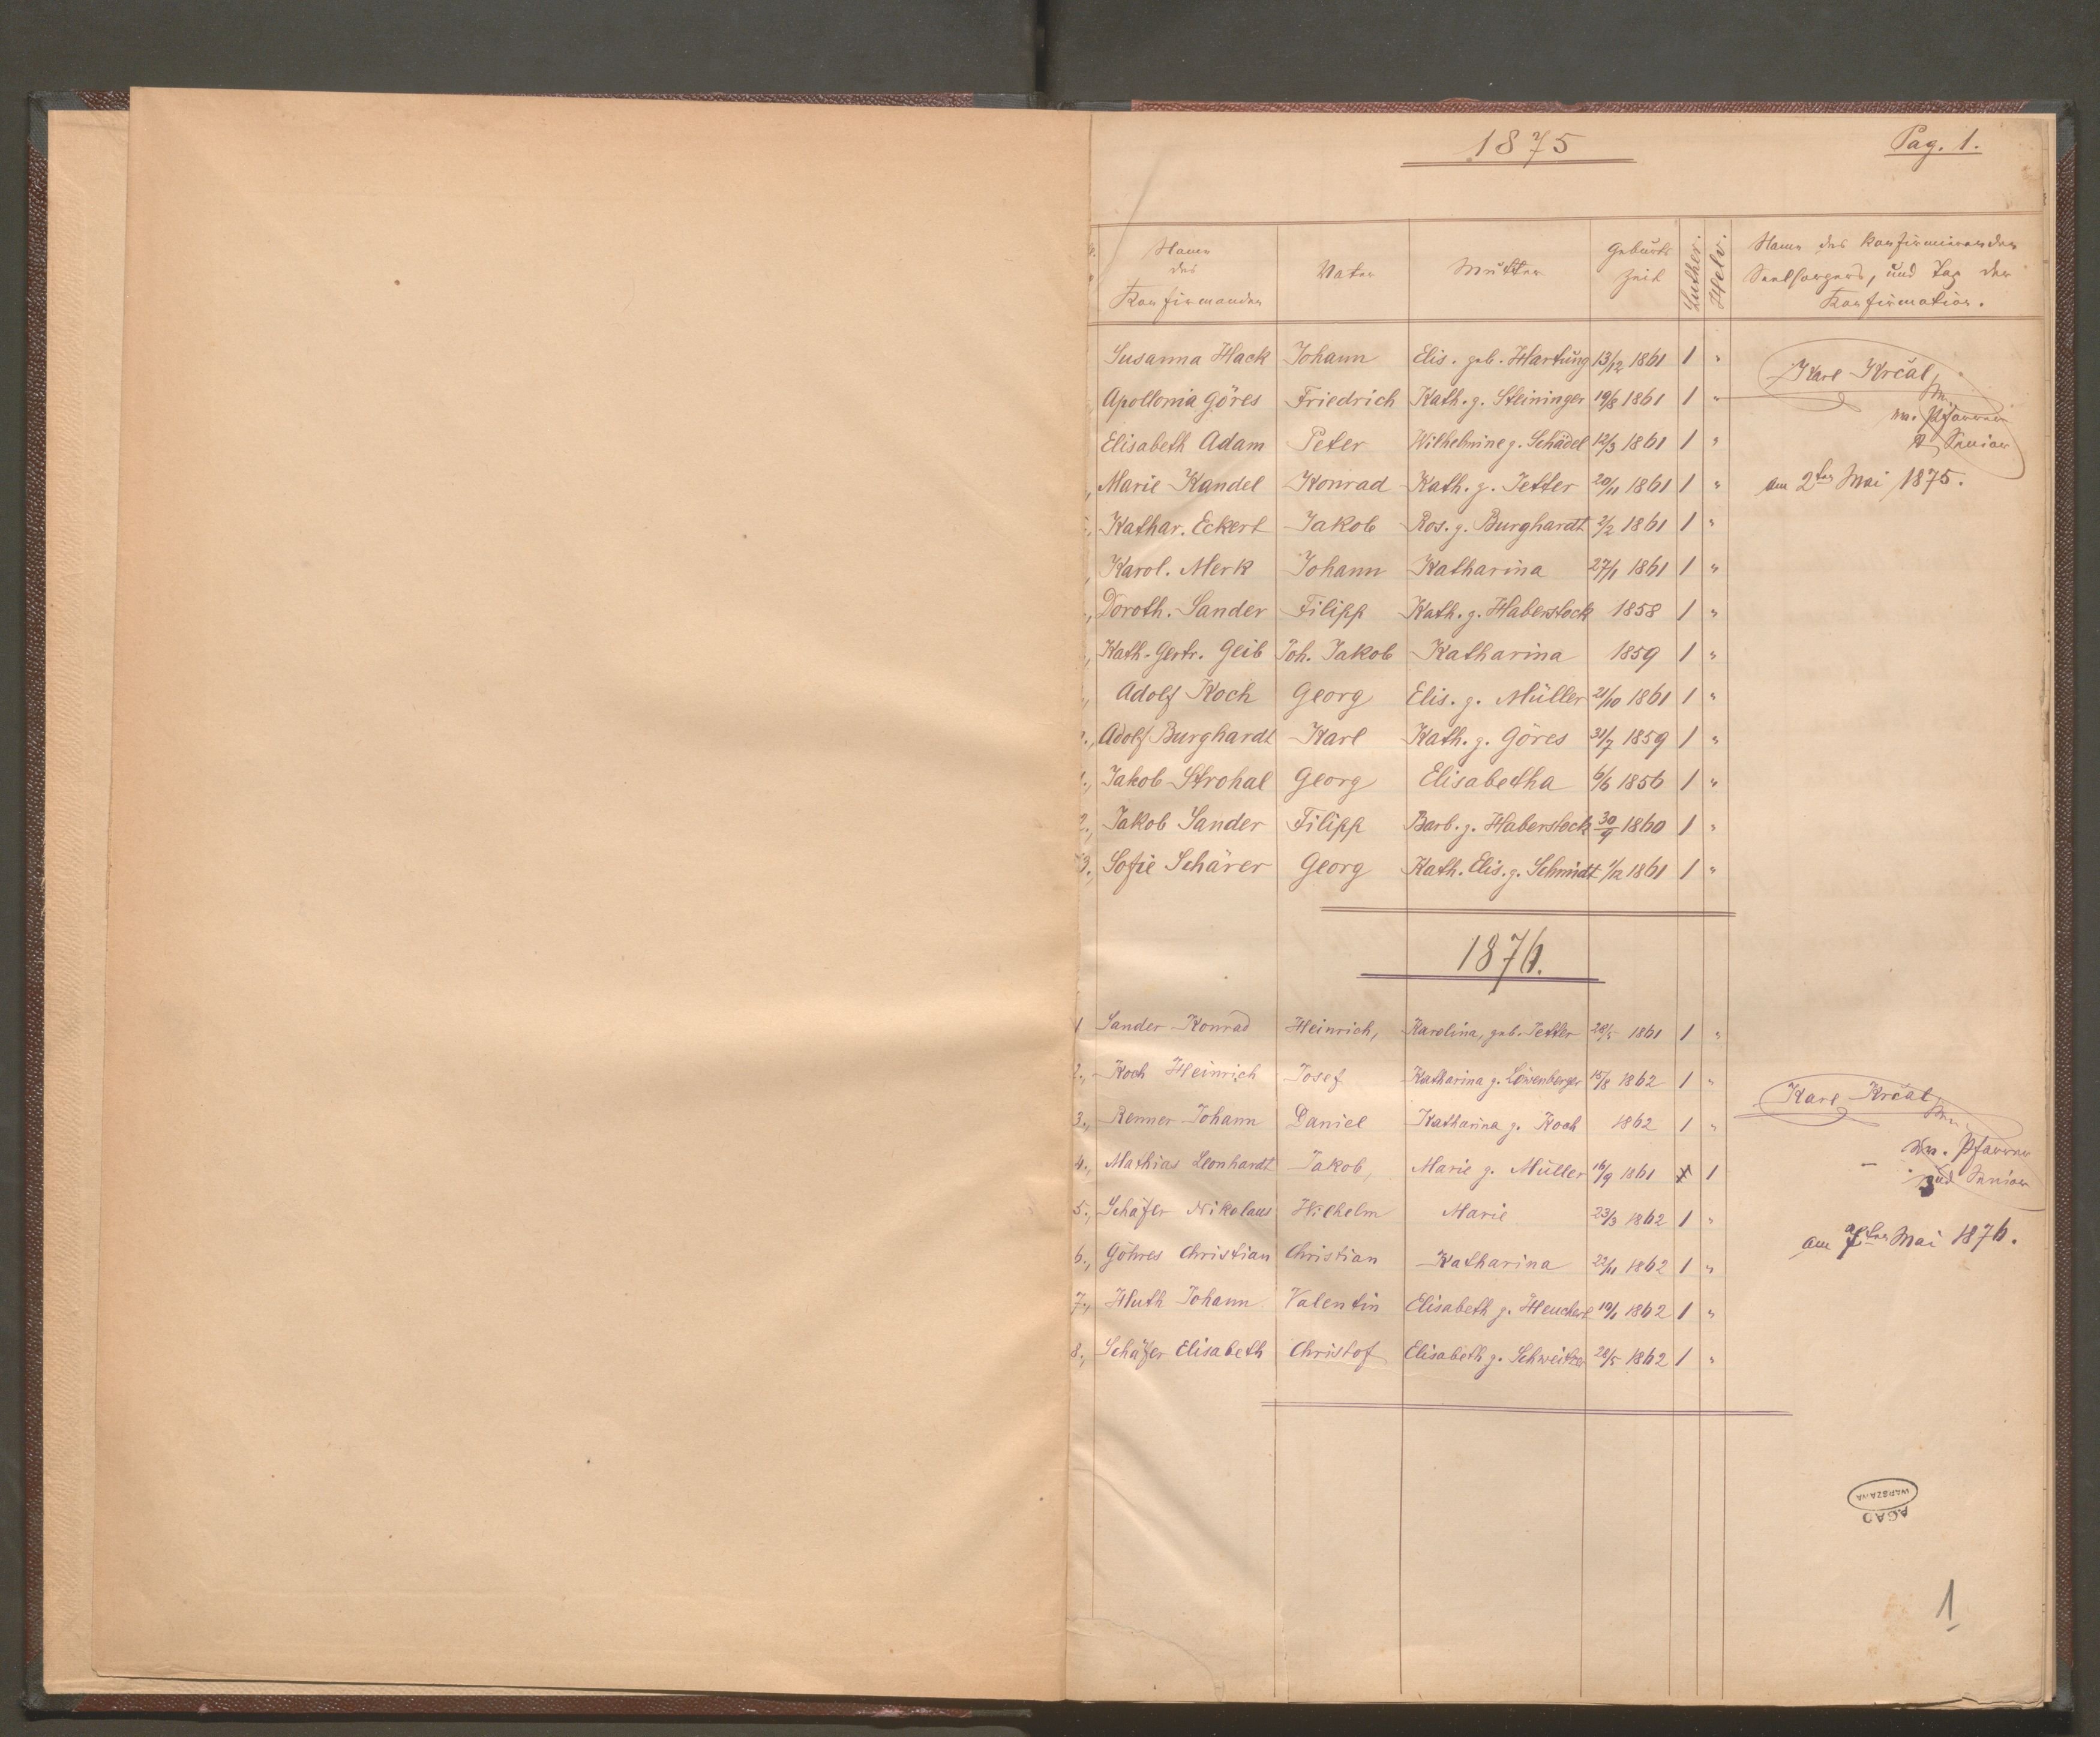 1875
Pag. 1.
Name des Konfirmanden | Vater | Mutter | Geburts Zeit | Luther. | Helv. | Name des konfirmirenden Seelsorgers, und Tag der Konfirmation.
Susanna Hack | Johann | Elis. geb. Hartung | 13/12 1861 | 1 | "
Apollonia Göres | Friedrich | Kath. g. Steininger | 19/8 1861 | 1 | "
Elisabeth Adam | Peter | Wilhelmine g. Schädel | 12/3 1861 | 1 | "
Marie Kandel | Konrad | Kath. g. Jetter | 20/11 1861 | 1 | "
Kathar. Eckert | Jakob | Ros. g. Burghardt | 2/2 1861 | 1 | "
Karol. Merk | Johann | Katharina | 27/1 1861 | 1 | "
Doroth. Sander | Filipp | Kath. g. Haberstock | 1858 | 1 | "
Kath. Gertr. Geib | Joh. Jakob | Katharina | 1859 | 1 | "
Adolf Koch | Georg | Elis. g. Müller | 21/10 1861 | 1 | "
Adolf Burghardt | Karl | Kath. g. Göres | 31/7 1859 | 1 | "
Jakob Strohal | Georg | Elisabetha | 6/6 1856 | 1 | "
2., Jakob Sander | Filipp | Barb. g. Haberstock | 30/9 1860 | 1 | "
3., Sofie Schärer | Georg | Kath. Elis. g. Schmidt | 1/12 1861 | 1 | "
Karl Krčal
ev. Pfarrer
& Senior
am 2ten Mai 1875.
1876.
1 Sander Konrad | Heinrich, | Karolina, geb. Jetter | 28/5 1861 | 1 | "
2., Koch Heinrich | Josef | Katharina g. Löwenberger | 15/8 1862 | 1 | "
3., Renner Johann | Daniel | Katharina g. Koch | 1862 | 1 | "
4., Mathias Leonhardt | Jakob, | Marie g. Müller | 16/9 1861 | | 1
5., Schäfer Nikolaus | Wilhelm | Marie | 23/3 1862 | 1 | "
6., Göhres Christian | Christian | Katharina | 22/11 1862 | 1 | "
7., Huth Johann | Valentin | Elisabeth g. Heuchert | 19/1 1862 | 1 | "
8., Schäfer Elisabeth | Christof | Elisabeth g. Schweitzer | 28/5 1862 | 1 | "
Karl Krčal
ev. Pfarrer
und Senior
am 7ten Mai 1876.
WARSZAWA
AGAD
1